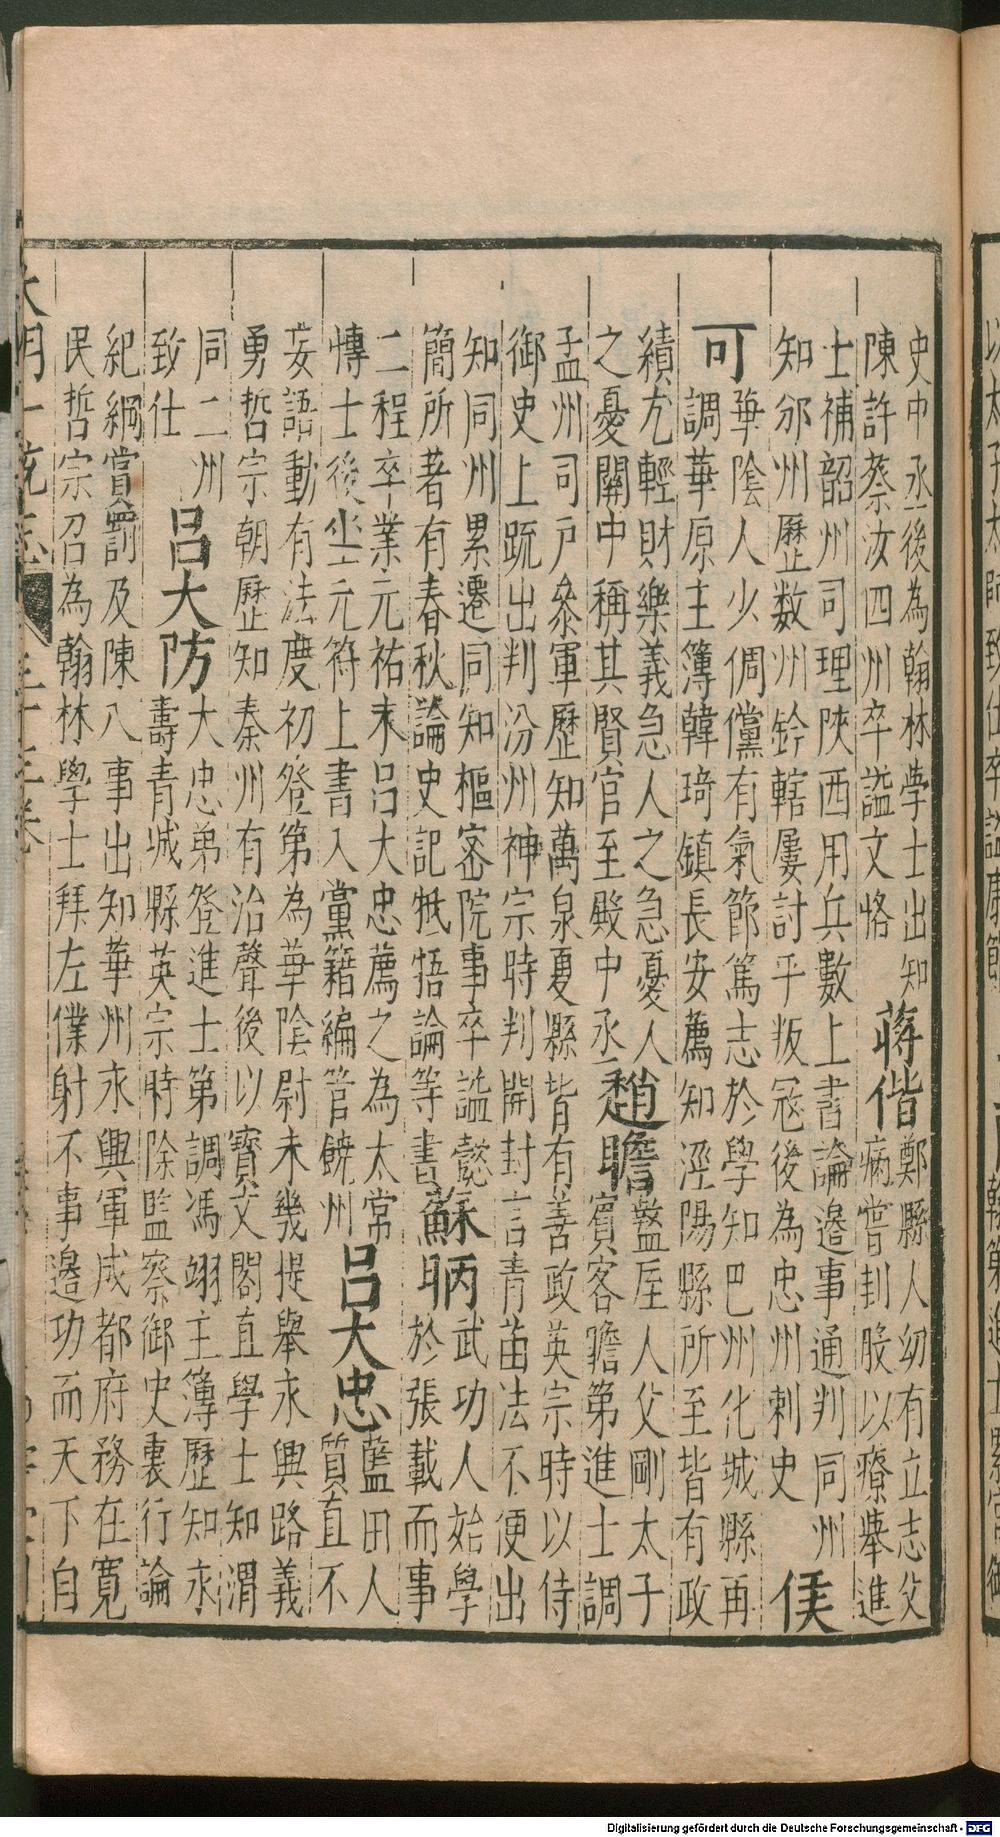 史中丞後為翰林學士出知
陳許蔡汝四州卒謚文恪
蔣偕
鄭縣人幼有立志父
病嘗刲股以療舉進
士補韶州司理陝西用兵數上書論邊事通判同州
知邠州歷数州鈐轄屢討平叛冦後為忠州刺史
侯
可
華陰人少倜儻有氣節篤志於學知巴州化城縣再
調華原主簿韓琦鎮長安薦知涇陽縣所至皆有政
績尤輕財樂義急人之急憂人
之憂關中稱其賢官至殿中丞
趙瞻
盩厔人父剛太子
賓客瞻第進士調
孟州司戶叅軍歷知萬泉夏縣皆有善政英宗時以侍
御史上䟽出判汾州神宗時判開封言青苗法不便出
知同州累遷同知樞密院事卒謚懿
簡所著有春秋論史記牴牾論等書
蘇昞
武功人始學
於張載而事
二程卒業元祐末呂大忠薦之為太常
慱士後坐元符上書入黨籍編管饒州
呂大忠
藍田人
質直不
妄語動有法度初登第為華陰尉未幾提舉永興路義
勇哲宗朝歷知秦州有治聲後以寶文閣直學士知渭
同二州
致仕
呂大防
大忠弟登進士第調馮翊主簿歷知永
壽青城縣英宗時除監察御史裏行論
紀綱賞罰及陳八事出知華州永興軍成都府務在寬
民哲宗召為翰林學士拜左僕射不事邊功而天下自
大明一統志
Digitalisierung gefördert durch die Deutsche Forschungsgemeinschaft - DFG